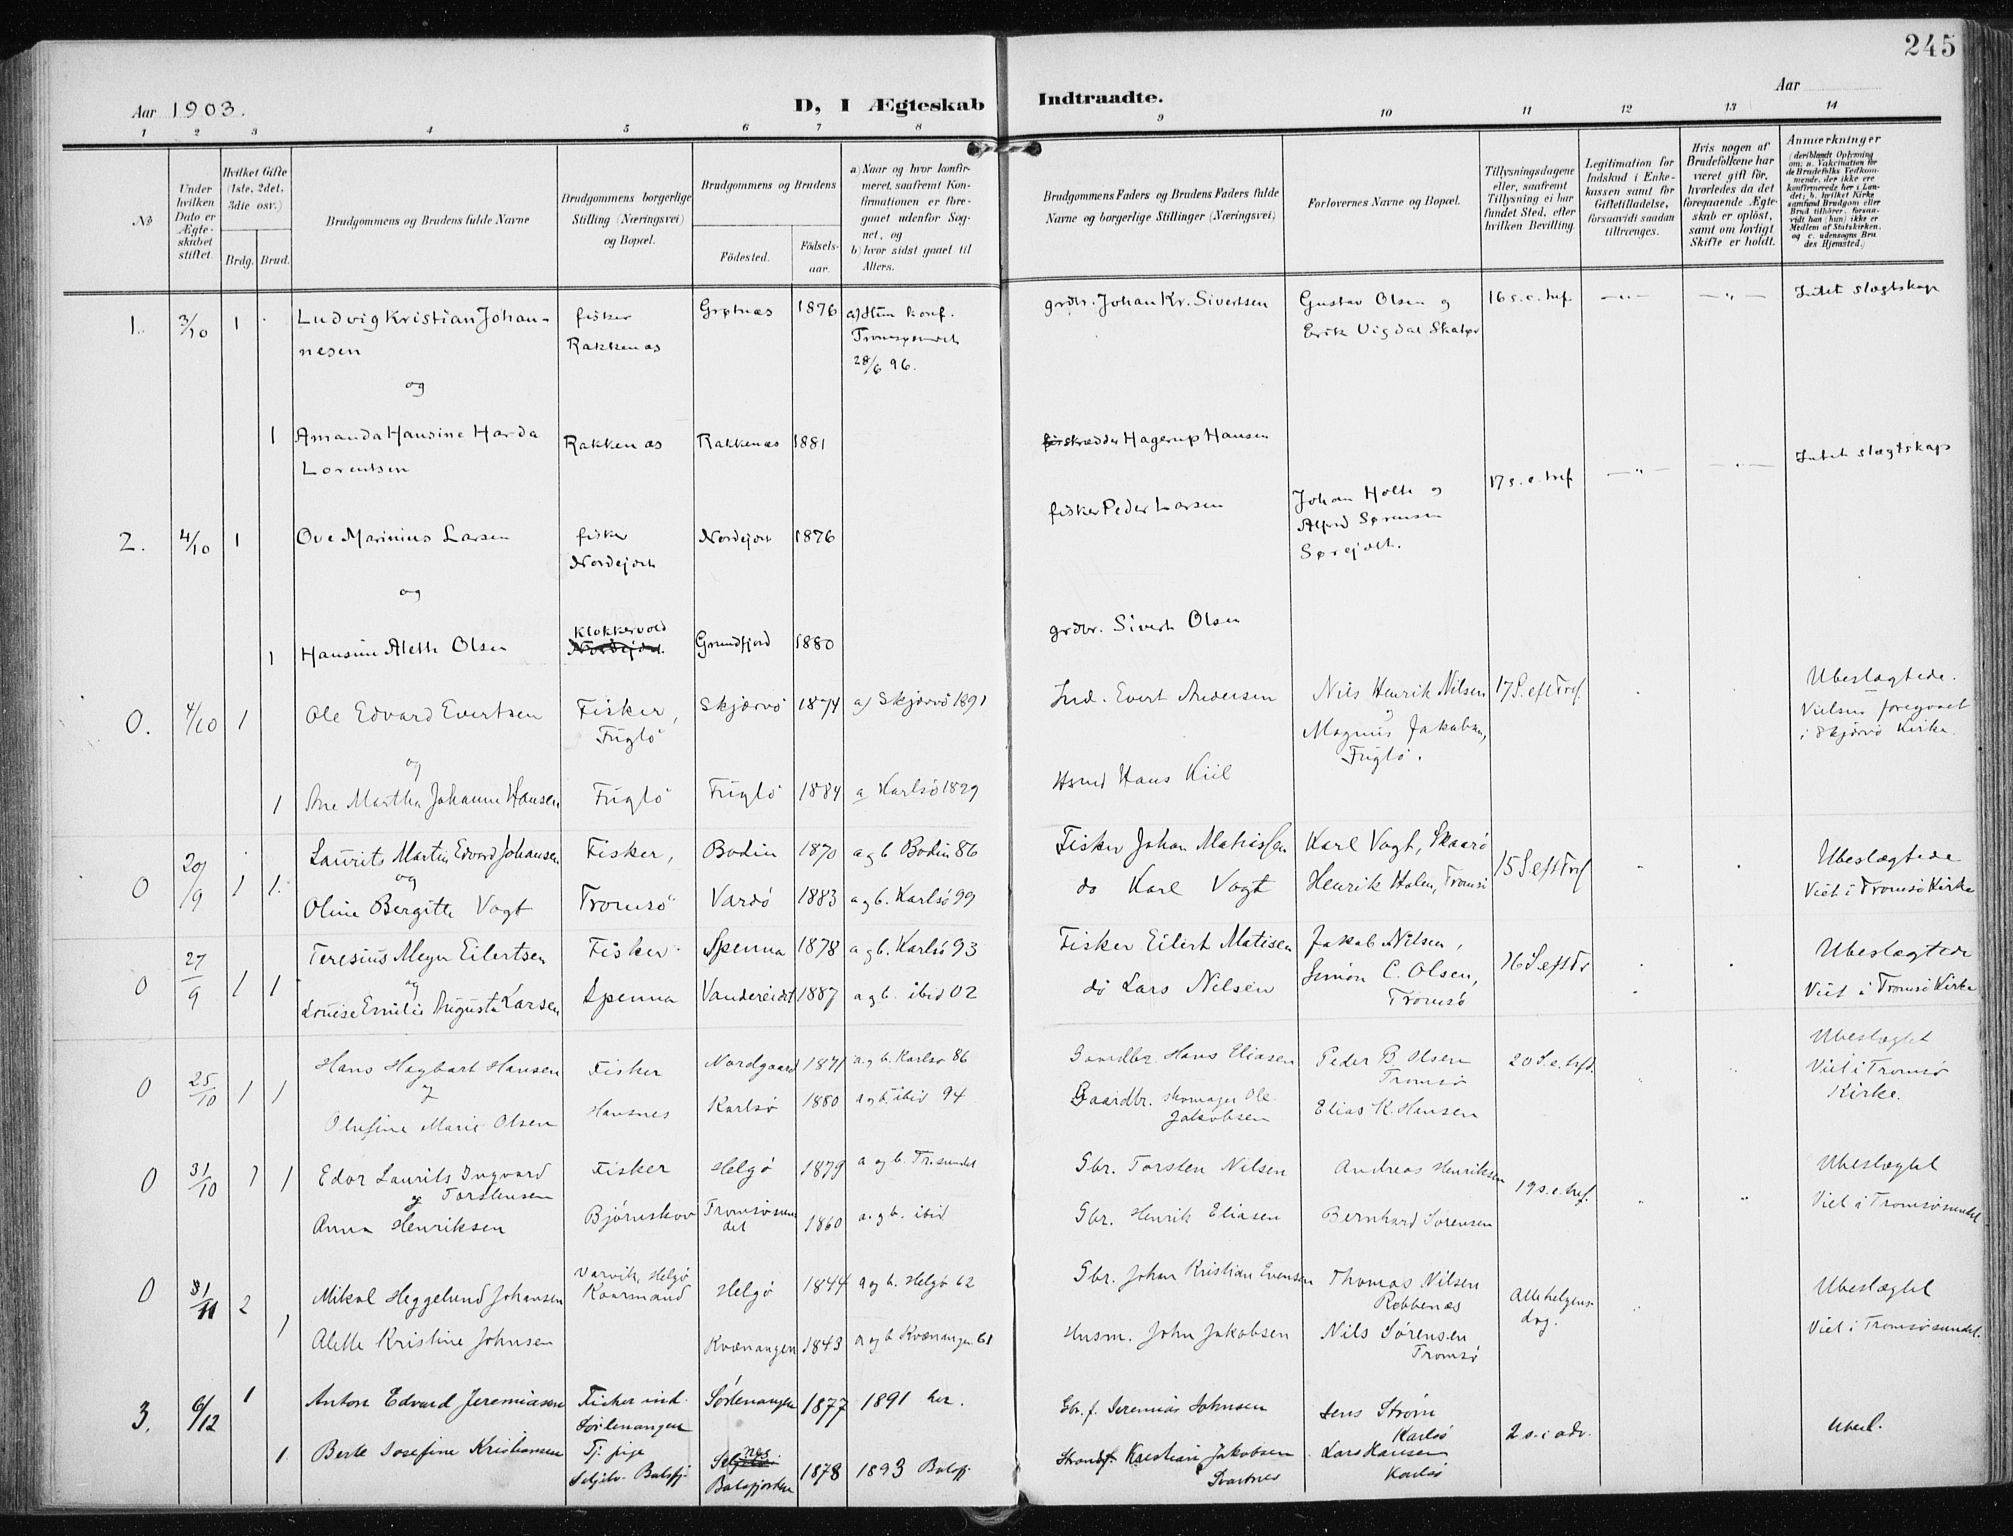 245
Aar 1903.
D, I Ægteskab Indtraadte.
Aar
1 2 3 4 5 6 7 8 9 10 11 12 13 14
No
Under hvilken Dato er Ægteskabet stiftet.
Hvilket Gifte (1ste, 2det, 3die osv.)
Brdg. Brud.
Brudgommens og Brudens fulde Navne
Brudgommens borgerlige Stilling (Næringsvei) og Bopæl.
Brudgommens og Brudens
Födested.
Födselsaar.
a) Naar og hvor konfirmeret, saafremt Konfirmationen er foregaaet udenfor Sognet, og
b) hvor sidst gaaet til Alters.
Brudgommens Faders og Brudens Faders fulde Navne og borgerlige Stillinger (Næringsvei)
Forlovernes Navne og Bopæl.
Tillysningsdagene eller, saafremt Tillysning ei har fundet Sted, efter hvilken Bevilling.
Legitimation for Indskud i Enkekassen samt for Giftetilladelse, forsaavidt saadan tiltrænges.
Hvis nogen af Brudefolkene har været gift för, hvorledes da det foregaaende Ægteskab er oplöst, samt om lovligt Skifte er holdt.
Anmærkninger
(deriblandt Oplysning om: a. Vakcination for de Brudefolks Vedkommende, der ikke ere konfirmerede her i Landet; b. hvilket Kirkesamfund Brudgom eller Brud tilhörer, forsaavidt han (hun) ikke er Medlem af Statskirken, og c. udensogns Brudes Hjemsted.)
1. 3/10 1 Ludvig Kristian Johannesen fisker Rakkenæs Grøtnæs 1876 a) Hun konf. Tromsøsundet 28/6 96. grdbr. Johan Kr. Sivertsen Gustav Olsen og Erik Vigdal Skatør 16 s. e. tref. — " — — " — Intet slægtskap
og
1 Amanda Hansine Harda Lorentsen Rakkenæs Rakkenæs 1881 skrædder Hagerup Hansen
2. 4/10 1 Ove Marinius Larsen fisker Nordejdet Nordejdet 1876 fisker Peder Larsen Johan Holte og Alfred Sørensen Sørejdet. 17 s. e. tref — " — — " — Intet slægtskap
og
1 Hansine Alette Olsen Klokkervold Nordejdet. Grundfjord 1880 grdbr. Sivert Olsen
0. 4/10 1 Ole Edvard Evertsen Fisker, Fuglö Skjærvö 1874 a) Skjærvö 1891 Ind. Evert Andersen Nils Henrik Nilsen og Magnus Jakobsen, Fuglö. 17 S. eft Tref. Ubeslægtede. Vielsen foregaaet i Skjærvö Kirke.
og
1 Ane Martha Johanne Hansen Fuglö Fuglö 1884 a Karlsö 1829 Hsmd Hans Kiil
0 20/9 1 1 Laurits Martin Edvard Johansen Fisker, Bodin 1870 a og b Bodin 86 Fisker Johan Mathissen Karl Vogt, Skaarö 15 S eft Tref Ubeslægtede
og
Oline Bergitte Vogt Tromsö Vardö 1883 a og b. Karlsö 99 do Karl Vogt Henrik Holen, Tromsö Viet i Tromsö Kirke
0 27/9 1 1 Teresius Meyer Eilertsen Fisker Spenna 1878 a og b. Karlsö 93 Fisker Eilert Matisen Jakob Nilsen, 16 S eft Tr Ubeslægtede
og
Louise Emilie Augusta Larsen Spenna Vandereidet 1887 a og b. ibid 02 do Lars Nilsen Simon C. Olsen, Tromsö Viet i Tromsö Kirke
0 25/10 1 1 Hans Hagbart Hansen Fisker Nordgaard 1871 a og b. Karlsø 86 Gaardbr. Hans Eliasen Peder B Olsen Tromsö 20 S. e. tref. Ubeslægtet Viet i Tromsö Kirke.
og
Olufine Marie Olsen Hansnes Karlsö 1880 a og b. ibid 94 Gaardbr. skomager Ole Jakobsen Elias K. Hansen
0 31/10 1 1 Edor Laurits Ingvard Torstensen Fisker Helgö 1879 a og b. Tr. sundet Gbr. Torsten Nilsen Andreas Henriksen 19 s. e. tref. Ubeslægtet
og
Anna Henriksen Bjørnskov Tromsøsundet 1860 a. og b. ibid Gbr. Henrik Eliasen Bernhard Sørensen Viet i Tromsøsundet
0 31/11 2 Mikal Heggelund Johansen Varvik, Helgö Kaarmand Helgö 1844 a og b. Helgö 62 Gbr. Johan Kristian Evensen Thomas Nilsen Robbenæs Allehelgensdag. Ubeslægtet
1 Alette Kristine Johnsen Kvænangen 1843 a og b Kvænangen 61 Husm. John Jakobsen Nils Sørensen Tromsö Viet i Tromsøsundet.
3. 6/12 1 Anton Edvard Jeremiasen Fisker ind. Sørlenangen Sørlenangen 1877 1891 her. Gbr. f. Jeremias Johnsen Jens Strøm Karlsö 2 s. i adv. Ubesl.
1. Berte Josefine Kristiansen Tj. pige Balsfj. Balsfjorden 1878 1893 Balsfj. Kristian Jakobsen Svartnes Lars Hansen Karlsö